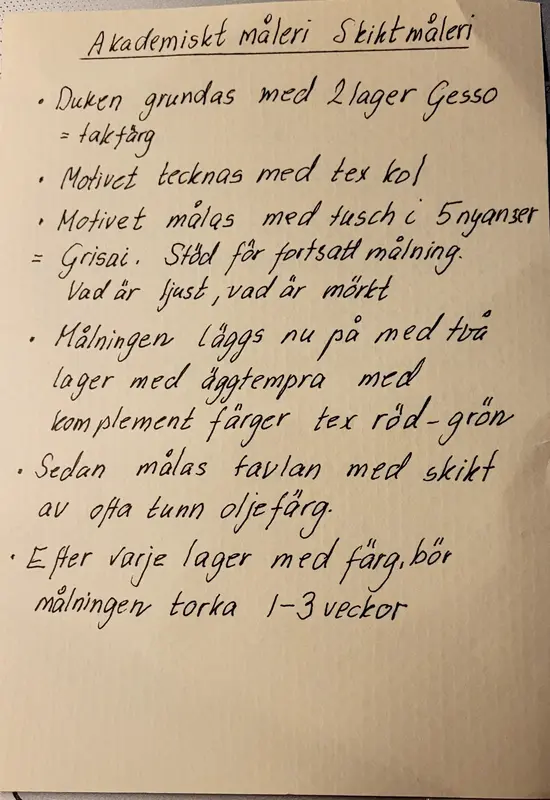 Akademiskt måleri Skiktmåleri
• Duken grundas med 2 lager Gesso
= takfärg
• Motivet tecknas med tex kol
• Motivet målas med tusch i 5 nyanser
= Grisai. Stöd för fortsatt målning.
Vad är ljust, vad är mörkt
• Målningen läggs nu på med två
lager med äggtempra med
komplement färger tex röd-grön
• Sedan målas tavlan med skikt
av ofta tunn oljefärg.
• Efter varje lager med färg, bör
målningen torka 1-3 veckor